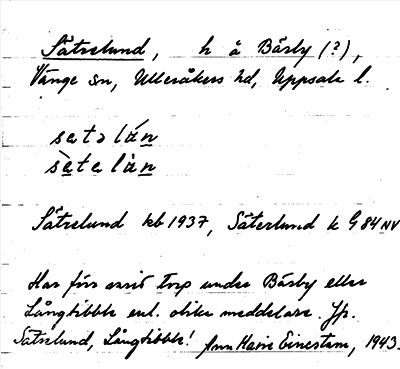 Sätrelund, h å Bärby (?),
Vänge sn, Ulleråkers hd, Uppsala l.
setə lán
sète làn
Sätrelund kb 1937, Säterlund k G 84 NV
Har förr varit torp under Bärby eller
Långtibble enl. olika meddelare. Jfr.
Sätrelund, Långtibble! Ann Marie Einestam, 1943.